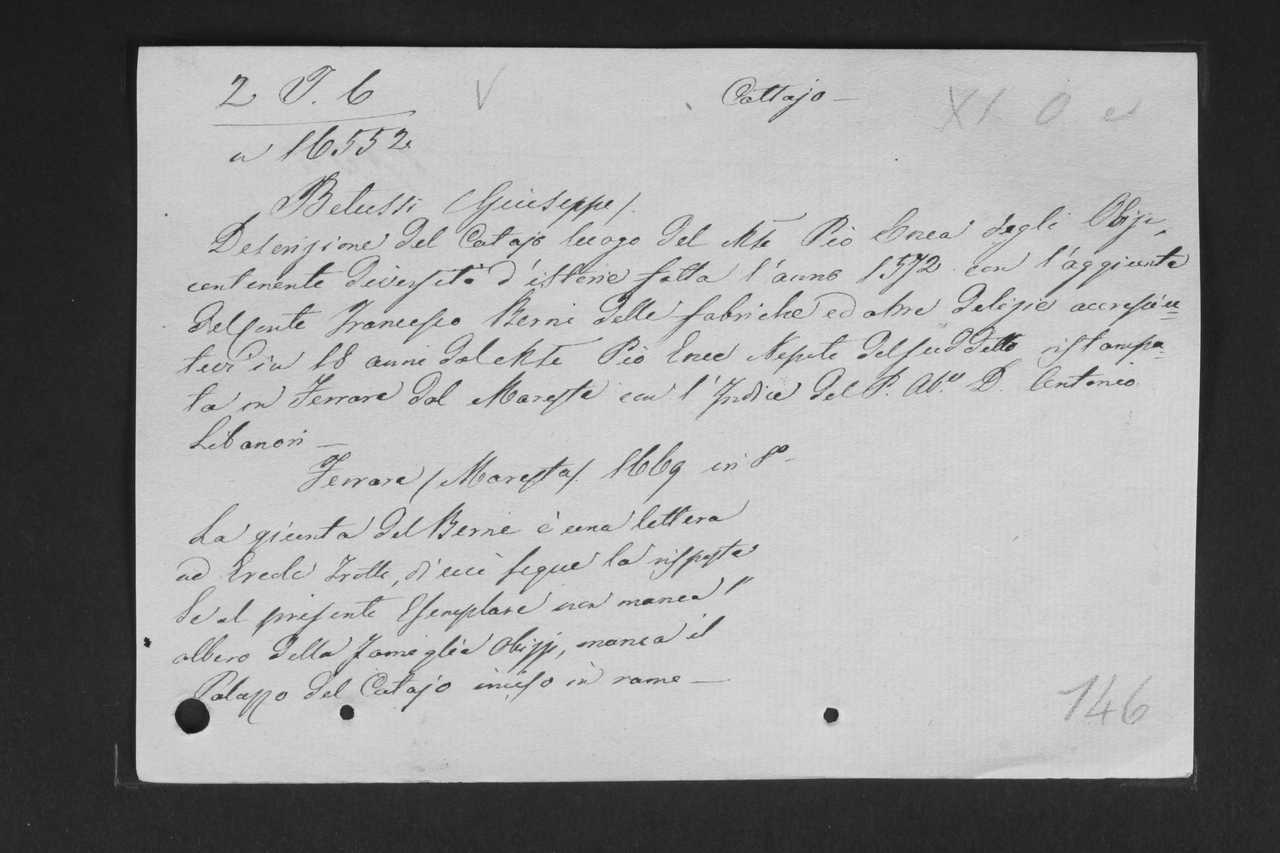 2 T. 6 V Cattajo — XI. O. e
a 16552
Betussi (Giuseppe).
Descrizione del Catajo luogo del Mse Pio Enea degli Obizi,
contenente diversità d'istorie fatta l'anno 1572 con l'aggiunta
del Conte Francesco Berni delle fabriche ed altre delizie accresciu=
tevi in 18 anni dal Mse Pio Enea Nepote del suddetto ristampa=
ta in Ferrara dal Maresta con l'Indice del P. Abe D. Antonio
Libanori —
Ferrara (Maresta). 1669 in 8º —
La giunta del Berni è una lettera
ad Ercole Trotti, di cui segue la risposta
Se al presente Esemplare non manca l'
albero della Famiglia Obizzi, manca il
Palazzo del Catajo inciso in rame —
146